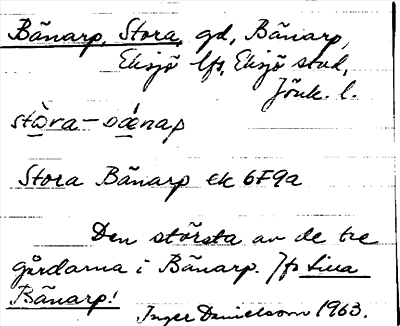 Bänarp, Stora, gd, Bänarp,
Eksjö lfs, Eksjö stad,
Jönk. l.
stòra-bǽnap
Stora Bänarp ek 6F9a
Den största av de tre
gårdarna i Bänarp. Jfr Lilla
Bänarp!
Inger Danielsson 1963.